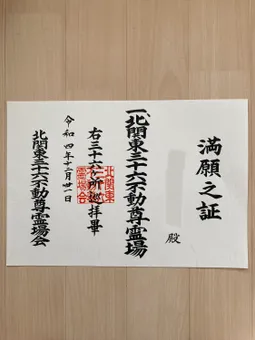 満願之証
殿
一、北関東三十六不動尊霊場
右三十六ヶ所巡拝畢
令和四年十二月廿一日
北関東三十六不動尊霊場会
北関東
霊場会